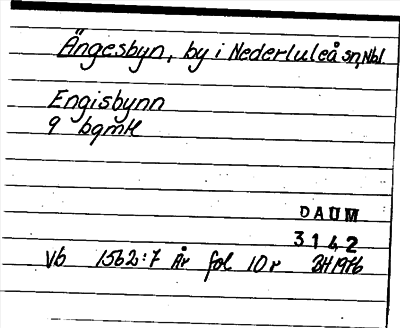 Ängesbyn, by i Nederluleå sn, Nbl.
Engisbynn
9 bgmH
DAUM
3142
Vb 1562:7 År fol 10r BH 1976